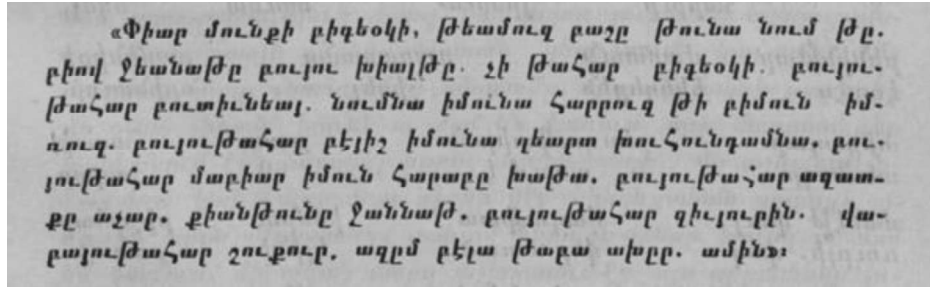 «Փիար մունքի բիզեօկի, թեամուզ բաշը թունա նում թը.
բիով Ջեանաթը բուլու խիալթը. չի թահար բիզեօկի. բուլու-
թահար բուտիւնեալ. նումնա իմունա հարրուզ թի բիմուն իմ-
ռուզ. բուլութահար բէլիշ իմունա ղեարտ խուհունգամնա, բու-
լութահար մարիար իմուն հարարը խաթա. բուլութահար ազատ-
քը աչար. քիանթունը Ջաննաթ. բուլութահար զիւլուրին. վա-
բալութահար շուքուր, ազըմ բէլա թաբա ախըր. ամին»։